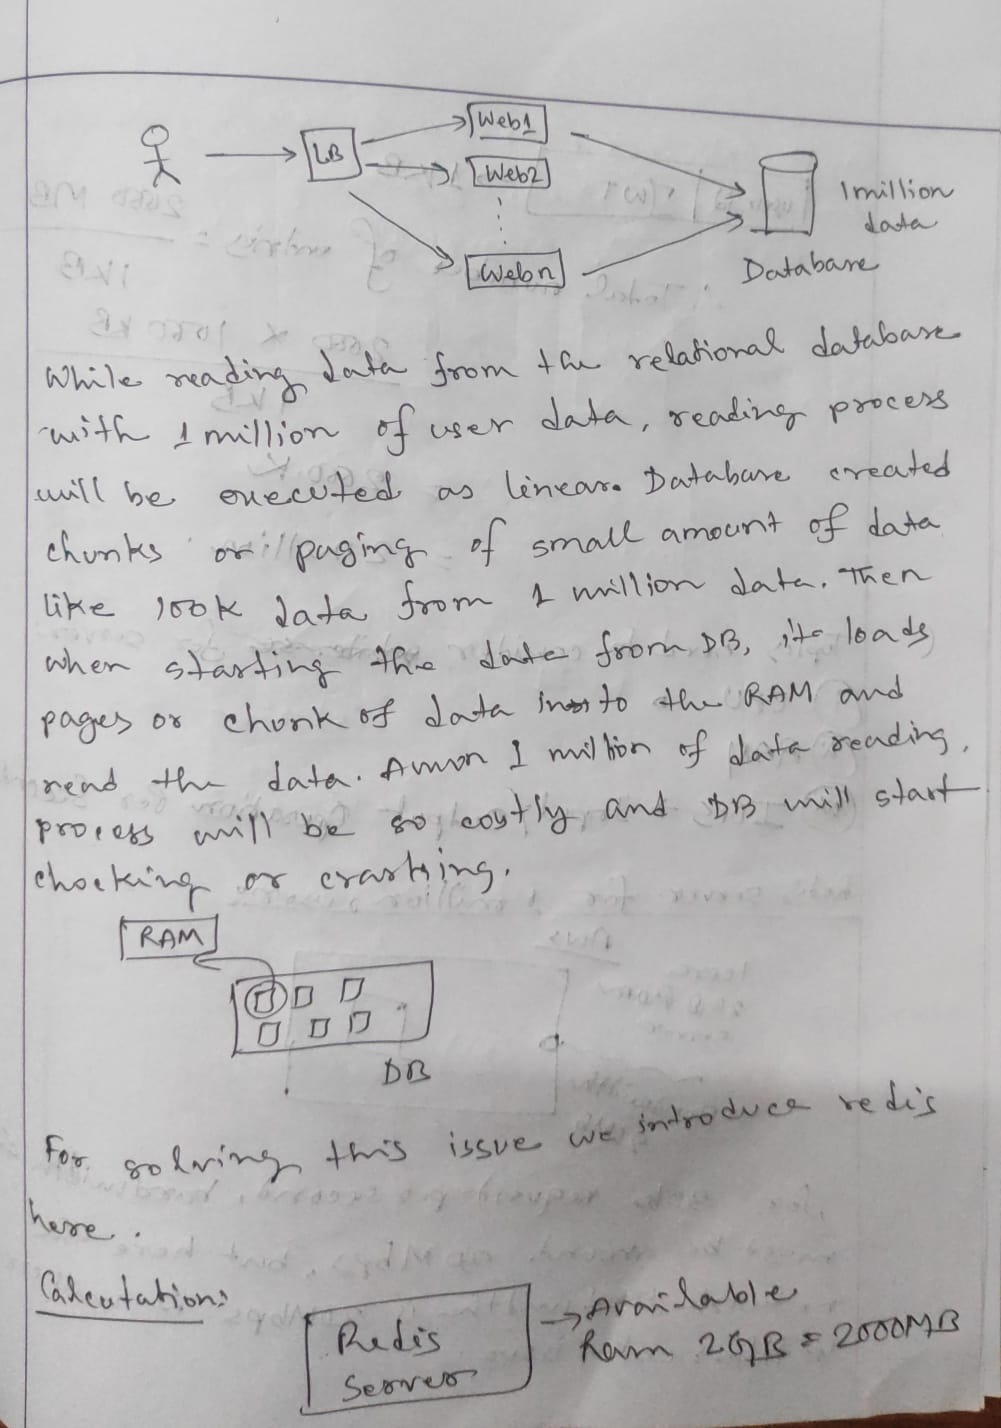 LB
Web1
Web2
Webn
1 million
data
Database
While reading data from the relational database
with 1 million of user data, reading process
will be executed as linear. Database created
chunks or paging of small amount of data
like 100k data from 1 million data. Then
when starting the data from DB, it loads
pages or chunk of data into the RAM and
read the data. 1 million of data reading
process will be so costly and DB will start
chocking or crashing.
RAM
DB
For solving this issue we introduce redis
here.
Calculation:
Redis
Server
→ Available
Ram 2GB = 2000MB